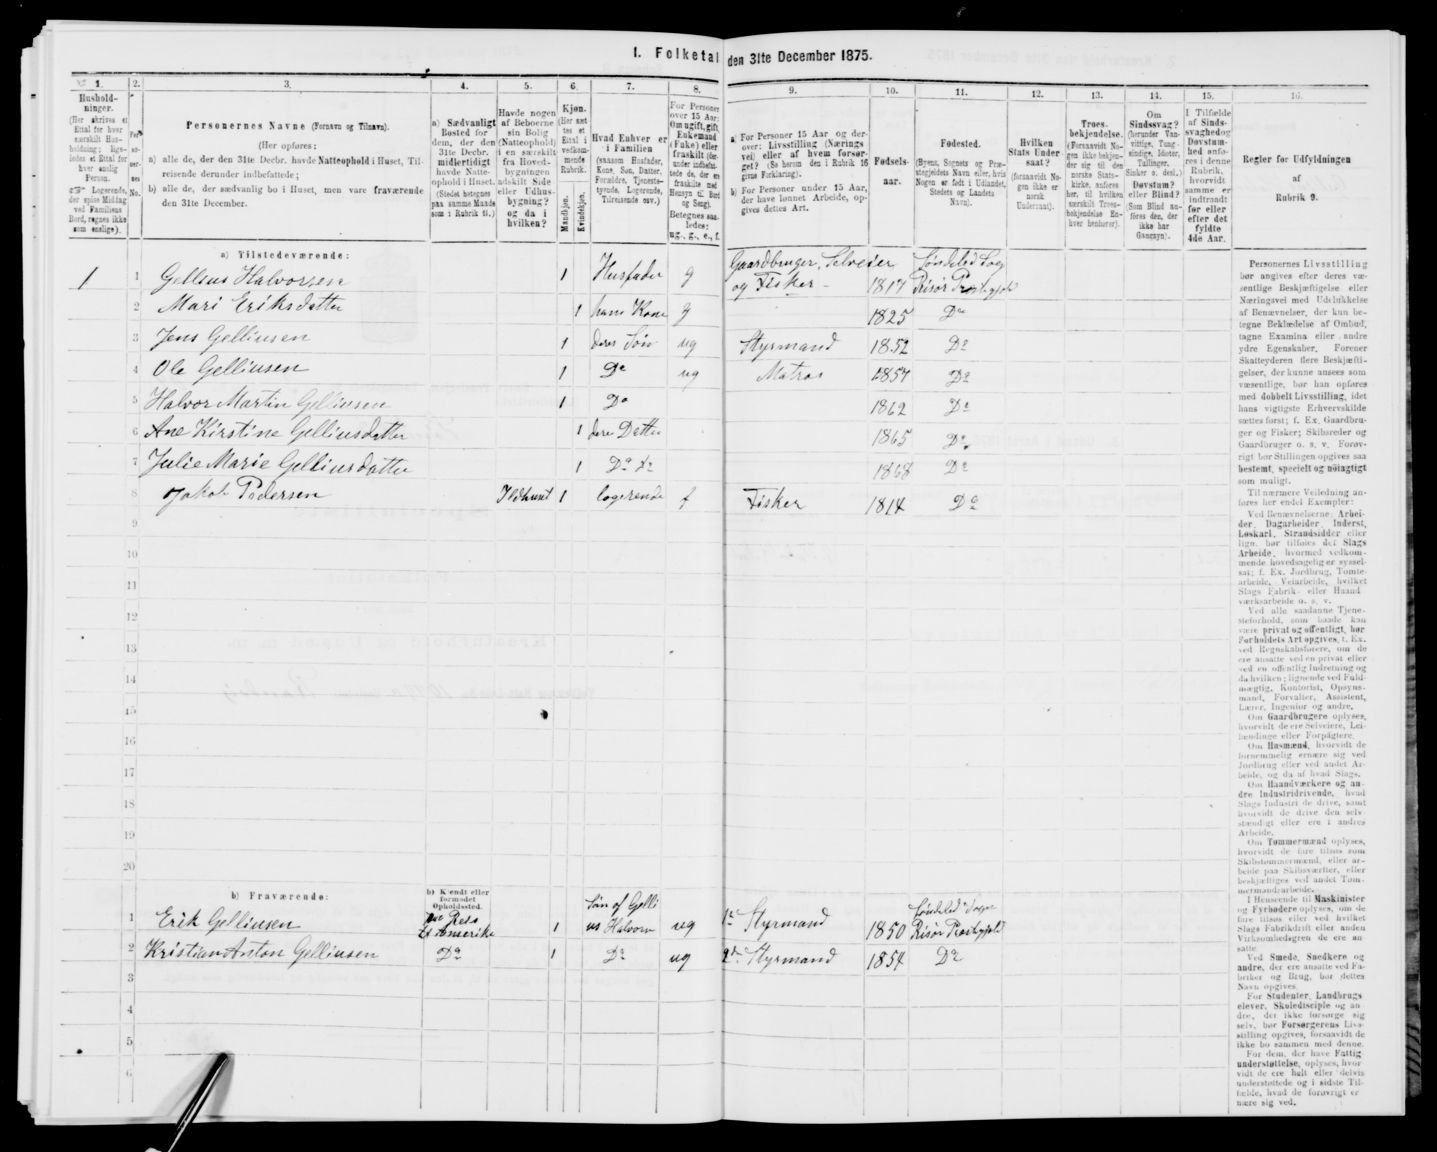 1. Folketal den 31te December 1875.
1.
2.
3.
4.
5.
6.
7.
8.
9.
10.
11.
12.
13.
14.
15.
16.
Hushold-
ninger.
(Her skrives et
Ettal for hver
særskilt Hus-
holdning; lige-
ledes et Ettal for
hver enslig
Person.
Logerende,
der spise Middag
ved Familiens
Bord, regnes ikke
som enslige).
No.
Personernes Navne (Fornavn og Tilnavn).
(Her opføres:
a) alle de, der den 31te Decbr. havde Natteophold i Huset, Til-
reisende derunder indbefattede;
b) alle de, der sædvanlig bo i Huset, men vare fraværende
den 31te December.
a) Sædvanligt
Bosted for
dem, der den
31te Decbr.
midlertidigt
havde Natte-
ophold i Huset.
(Stedet betegnes
paa samme Maade
som i Rubrik 11.)
Havde nogen
af Beboerne
sin Bolig
(Natteophold)
i en særskilt
fra Hoved-
bygningen
adskilt Side
eller Udhus-
bygning?
og da i
hvilken?
Kjøn.
(Her sæt-
tes et
Ettal i
vedkom-
mende
Rubrik.
Mandkjøn.
Kvindekjøn.
Hvad Enhver er
i Familien
(saasom Husfader,
Kone, Søn, Datter,
Forældre, Tjeneste-
tyende, Logerende,
Tilreisende osv.)
For Personer
over 15 Aar:
Om ugift, gift,
Enkemand
(Enke) eller
fraskilt (der-
under indbefat-
tede de, der ere
fraskilte med
Hensyn til Bord
og Seng).
Betegnes saa-
ledes:
ug., g., e., f.
a) For Personer 15 Aar og der-
over: Livsstilling (Nærings-
vei) eller af hvem forsør-
get? (Se herom den i Rubrik 16
givne Forklaring).
b) For Personer under 15 Aar,
der have lønnet Arbeide, op-
gives dettes Art.
Fødsels-
aar.
Fødested.
(Byens, Sognets og Præ-
stegjeldets Navn eller, hvis
Nogen er født i Udlandet,
Stedets og Landets
Navn).
Hvilken
Stats Under-
saat?
(forsaavidt No-
gen ikke er
norsk
Undersaat).
Troes-
bekjendelse.
(Forsaavidt No-
gen ikke bekjen-
der sig til den
norske Stats-
kirke, anføres
her, til hvilken
særskilt Troes-
bekjendelse En-
hver henhører).
Om
Sindssvag?
(herunder Van-
vittige, Tung-
sindige, Idioter,
Tullinger,
Sinker o. desl.)
Døvstum?
eller Blind?
(Som Blind an-
føres den, der
ikke har
Gangsyn).
I Tilfælde
af Sinds-
svaghed og
Døvstum-
hed anfø-
res i denne
Rubrik,
hvorvidt
samme er
indtraadt
før eller
efter det
fyldte
4de Aar.
Regler for Udfyldningen
af
Rubrik 9.
a) Tilstedeværende:
1 1 Gellius Halvorsen 1 Husfader g Gaardbruger, Selveier og Fisker 1817 Søndeled Sog Risør Præstegjeld
2 Mari Eriksdatter 1 hans Kone g 1825 Do
3 Jens Gelliusen 1 deres Søn ug Styrmand 1852 Do
4 Ole Gelliusen 1 Do ug Matros 1857 Do
5 Halvor Martin Gelliusen 1 Do 1862 Do
6 Ane Kirstine Gelliusdatter 1 dere Datter 1865 Do
7 Julie Marie Gelliusdatter 1 Do Do 1868 Do
8 Jakob Pedersen Ildhuset 1 logerende f Fisker 1814 Do
9
10
11
12
13
14
15
16
17
18
19
20
b) Fraværende:
b) Kjendt eller
formodet
Opholdssted.
1 Erik Gelliusen Paa Reis til Amerika 1 Søn af Gellius Halvorsn ug 1st Styrmand 1850 Søndeled Sogn Risør Præstegjeld
2 Kristian Anton Gelliusen Do 1 Do ug 2den Styrmand 1854 Do
3
4
5
6
Personernes Livsstilling
bør angives efter deres væ-
sentlige Beskjæftigelse eller
Næringsvei med Udelukkelse
af Benævnelser, der kun be-
tegne Beklædelse af Ombud,
tagne Examina eller andre
ydre Egenskaber. Forener
Skatteyderen flere Beskjæfti-
gelser, der kunne ansees som
væsentlige, bør han opføres
med dobbelt Livsstilling, idet
hans vigtigste Erhvervskilde
sættes først; f. Ex. Gaardbru-
ger og Fisker; Skibsreder og
Gaardbruger o. s. v. Forøv-
rigt bør Stillingen opgives saa
bestemt, specielt og nøiagtigt
som muligt.
Til nærmere Veiledning an-
føres her endel Exempler:
Ved Benævnelserne: Arbei-
der, Dagarbeider, Inderst,
Løskarl, Strandsidder eller
lign. bør tilføies det Slags
Arbeide, hvormed vedkom-
mende hovedsagelig er syssel-
sat; f. Ex. Jordbrug, Tomte-
arbeide, Veiarbeide, hvilket
Slags Fabrik- eller Haand-
værksarbeide o. s. v.
Ved alle saadanne Tjene-
steforhold, som baade kan
være privat og offentligt, bør
Forholdets Art opgives, f. Ex.
ved Regnskabsførere, om de
ere ansatte ved en privat eller
ved en offentlig Indretning og
da hvilken; lignende ved Fuld-
mægtig, Kontorist, Opsyns-
mand, Forvalter, Assistent,
Lærer, Ingeniør og andre.
Om Gaardbrugere oplyses,
hvorvidt de ere Selveiere, Lei-
lændinge eller Forpagtere.
Om Husmænd, hvorvidt de
fornemmelig ernære sig ved
Jordbrug eller ved andet Ar-
beide, og da af hvad Slags.
Om Haandværkere og an-
dre Industridrivende, hvad
Slags Industri de drive, samt
hvorvidt de drive den selv-
stændigt eller ere i andres
Arbeide.
Om Tømmermænd oplyses,
hvorvidt de fare tilsøs som
Skibstømmermænd, eller ar-
beide paa Skibsværfter, eller
beskjæftiges ved andet Tøm-
mermandsarbeide.
I Henseende til Maskinister
og Fyrbødere oplyses, om de
fare tilsøs eller ved hvilket
Slags Fabrikdrift eller anden
Virksomhedsgren de ere an-
satte.
Ved Smede, Snedkere og
andre, der ere ansatte ved Fa-
briker og Brug, bør dettes
Navn opgives.
For Studenter, Landbrugs-
elever, Skoledisciple og an-
dre, der ikke forsørge sig
selv, bør Forsørgerens Livs-
stilling opgives, forsaavidt de
ikke bo sammen med denne.
For dem, der have Fattig-
understøttelse, oplyses, hvor-
vidt de ere helt eller delvis
understøttede og i sidste Til-
fælde, hvad de forøvrigt er-
nære sig ved.